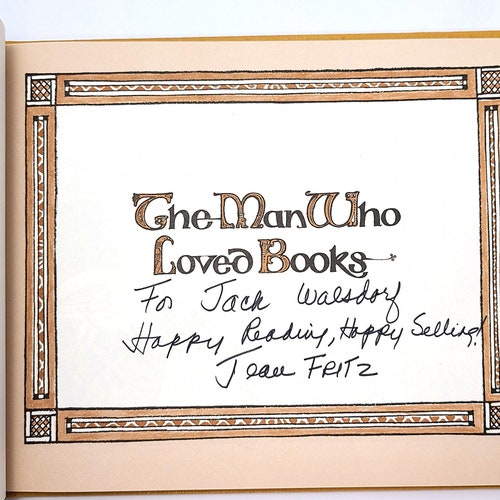 The Man Who
Loved Books
For Jack Walsdorf
Happy Reading, Happy Selling!
Jean FRITZ